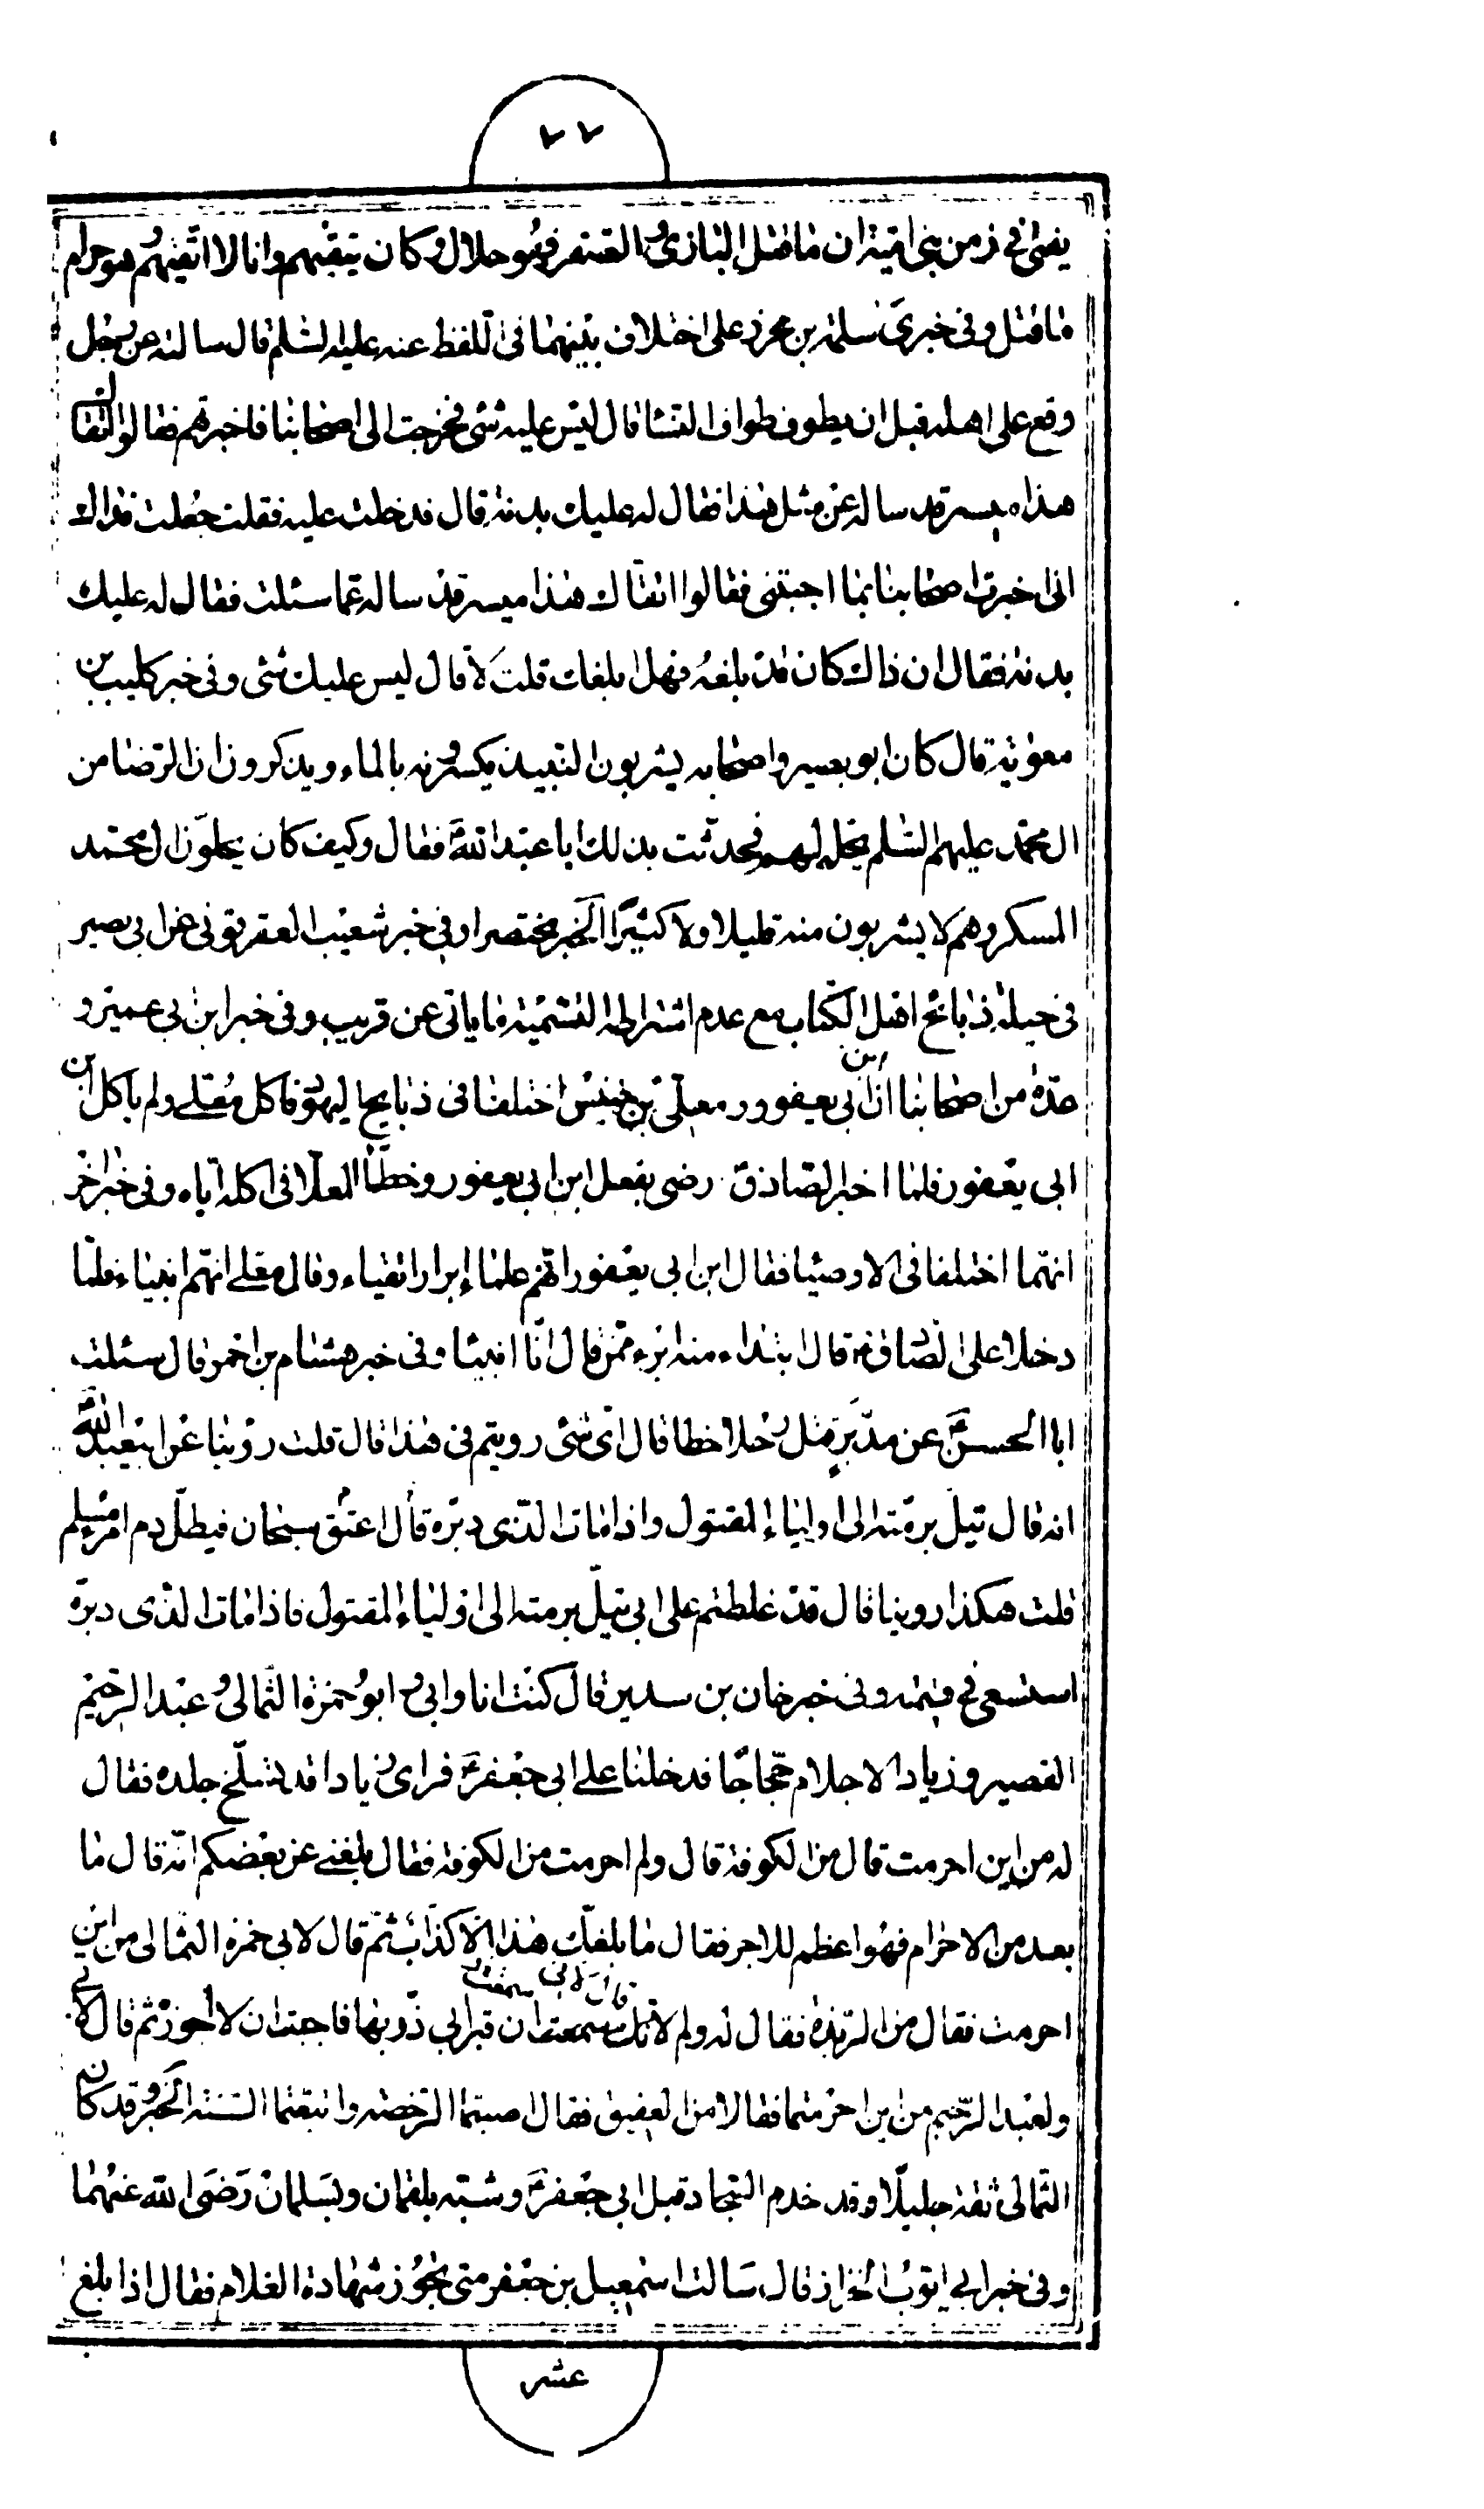 ٧٧
يفتى في زمن بني امية ان ما قتل البازي و الصقر فهو حلال و كان يتقيهم و انا لا اتقيهم هو حرام
ما قتل و في خبري سلمة بن محرز على اختلاف بينهما في اللفظ عنه عليه السلم قال سالته عن رجل
وقع على اهله قبل ان يطوف طواف النسا قال ليس عليه شى فخرجت الى اصحابنا فاخبرتهم فقالوا اتقاك
هذا ميسر قد ساله عن مثل هذا فقال له عليك بدنة قال فدخلت عليه فقلت جعلت فداك
انى اخبرت اصحابنا بما اجبتنى فقالوا اتقاك هذا ميسر قد ساله عما سئلت فقال له عليك
بدنة فقال ان ذاك كان قد بلغه فهل بلغك قلت لا قال ليس عليك شى و فى خبر كليب بن
معوية قال كان ابو بصير و اصحابه يشربون النبيذ يكسرونه بالماء و يذكرون ان الرضا من
ال محمد عليهم السلم يحله لهم فحدثت بذلك ابا عبد الله ع فقال و كيف كان يحلون ال محمد
المسكر و هم لا يشربون منه قليلا و لا كثيرا الخبر مختصرا و فى خبر شعيب العقرقوفى عن ابى بصير
فى حيلة ذبائح اهل الكتاب مع عدم اشتراط التسمية ما ياتى عن قريب و فى خبر ابن ابى عمير و
عدة من اصحابنا ان ابن ابى يعفور و معلى بن خنيس اختلفا فى ذبايح اليهود فاكل معلى و لم ياكل ابن
ابى يعفور فلما اخبرا الصادق رضى بفعل ابن ابى يعفور و خطا المعلا فى اكله اياه و فى خبر اخر
انهما اختلفا فى الاوصيا فقال ابن ابى يعفور انهم علماء ابرار اتقياء و قال معلى انهم انبياء فلما
دخلا على الصادق ع قال ابتداء منه ابرء ممن قال انا انبيا و فى خبر هشام بن احمر قال سئلت
ابا الحسن ع عن مدبر قتل رجلا خطا قال اى شى رويتم فى هذا قال قلت روينا عن ابيعبد الله ع
انه قال تيل برمته الى اولياء المقتول و اذا مات الذى دبره قال اعتق سبحان فيطل دم امرء مسلم
قلت هكذا روينا قال قد غلطتم على ابى تيل برمته الى اولياء المقتول فاذا مات الذى دبره
استسعى فى قيمته و فى خبر حنان بن سدير قال كنت انا و ابى و ابو حمزة الثمالى و عبد الرحيم
القصير و زياد الاحلام حجاجا فدخلنا على ابى جعفر ع فراى زيادا قد تسلخ جلده فقال
له من اين احرمت قال من الكوفة قال و لم احرمت من الكوفة فقال بلغنى عن بعضكم انه قال ما
بعد من الاحرام فهو اعظم للاجر فقال ما بلغك هذا الا كذاب ثم قال لابى حمزة الثمالى من اين
احرمت فقال من الربذة فقال له و لم لانك سمعت ان قبر ابى ذر بها فاحببت ان لا تجوزه ثم قال لابى
و لعبد الرحيم من اين احرمتما فقالا من العقيق فقال اصبتما الرخصة و اتبعتما السنة الخبر و قد كان
الثمالى ثقة جليلا و قد خدم السجاد قبل ابى جعفر ع و شبه بلقمان و بسلمان رضى الله عنهما
و فى خبر ابى ايوب الخزاز قال سالت اسمعيل بن جعفر متى تجوز شهادة الغلام فقال اذا بلغ
عشر